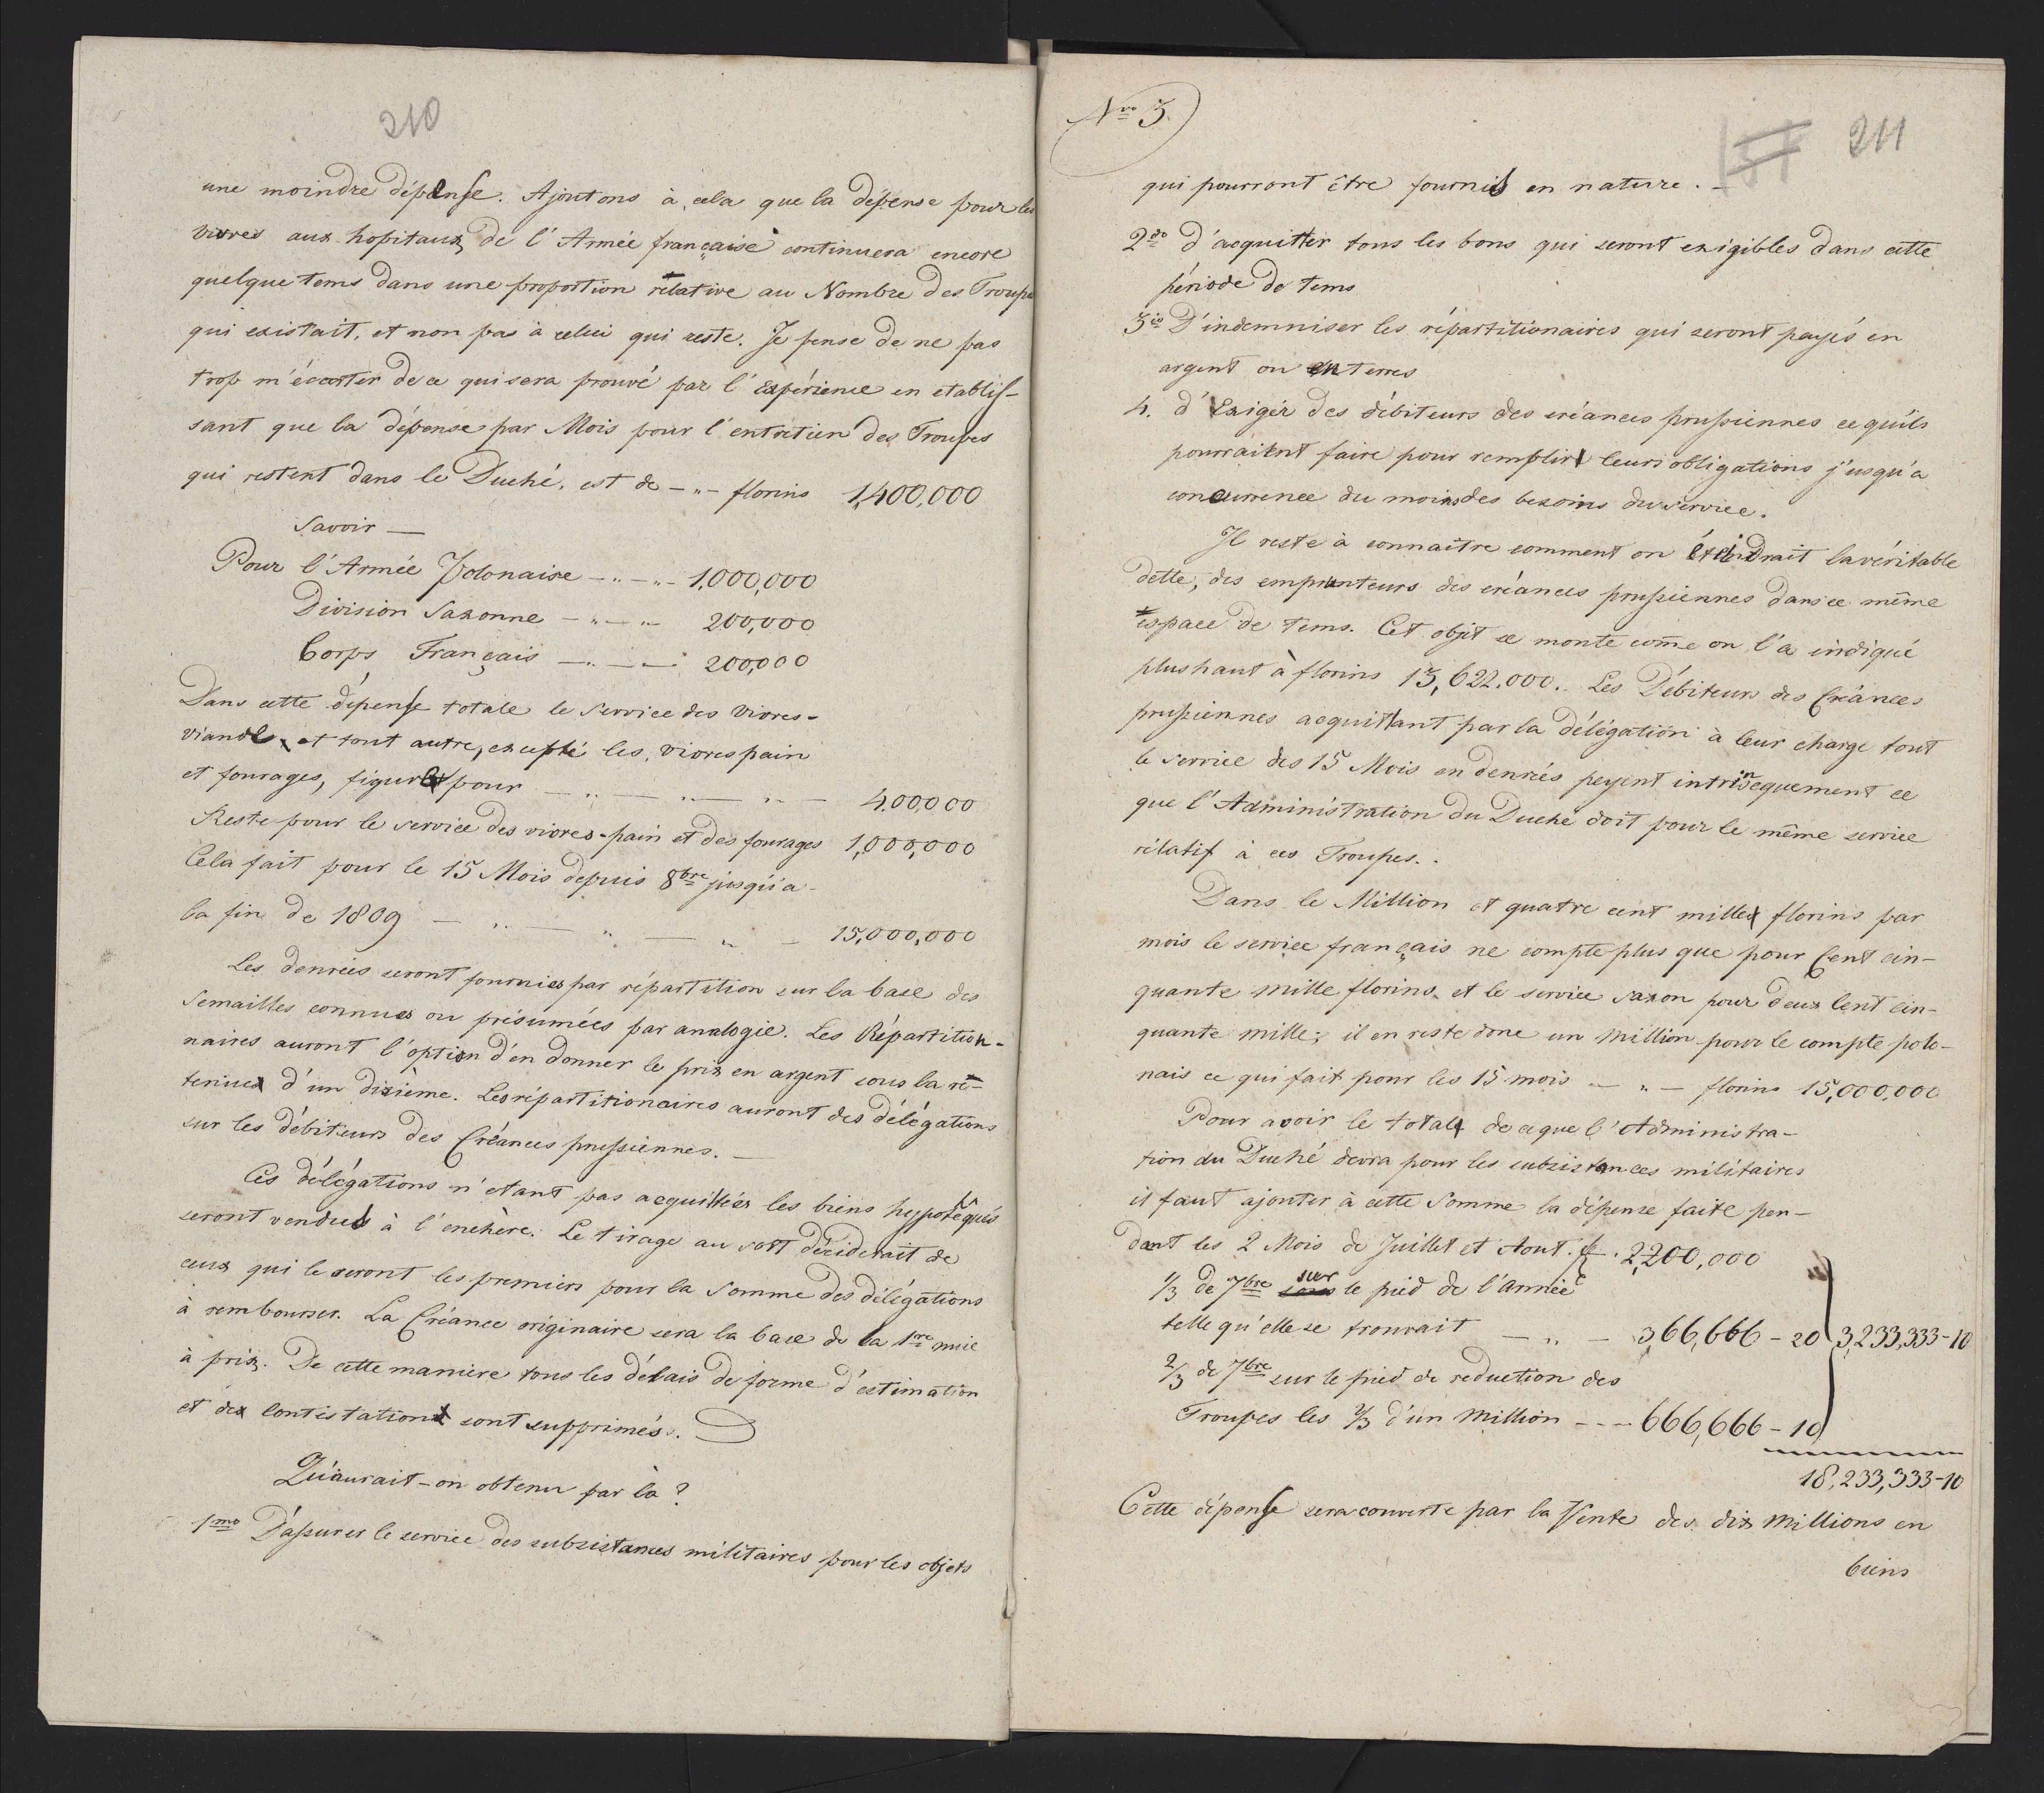 210
une moindre dépense. Ajoutons à cela que la dépense pour les
vivres aux hopitaux de l'Armée française continuera encore
quelque tems dans une proportion rélative au Nombre des Troupes
qui existait, et non pas à celui qui reste. Je pense de ne pas
trop m'écarter de ce qui sera prouvé par l'Expérience en etablis-
sant que la dépense par Mois pour l'entretien des Troupes
qui restent dans le Duché, est de -"- florins 1,400,000
Savoir —
Pour l'Armée Polonaise -"-"- 1,000,000
Division Saxonne -"-"- 200,000
Corps Français -"-"- 200,000
Dans cette dépense totale le Service des Vivres-
viande et tout autre, excepté les vivres pain
et fourages, figure pour -"-"-"- 400000
Reste pour le service des vivres-pain et des fourages 1,000,000
Cela fait pour le 15 Mois depuis 8bre jusqu'a-
la fin de 1809 -"-"-"- 15,000,000
Les denrées seront fournies par répartition sur la base des
Semailles connues ou présumées par analogie. Les Répartition-
naires auront l'option d'en donner le prix en argent sous la ré-
tenue d'un dixième. Les répartitionaires auront des délégations
sur les débiteurs des Créances prussiennes. —
Ces délégations n'etant pas acquittées les biens hypotéqués
seront vendus à l'enchère. Le tirage au sort déciderait de
ceux qui le seront les premiers pour la Somme des délégations
à rembourser. La Créance originaire sera la base de la 1re mise
à prix. De cette manière tous les délais de forme d'estimation
et des contestations sont supprimés.
Qu'aurait-on obtenu par là?
1mo D'assurer le service des subsistances militaires pour les objets
Nro 3.
211
qui pourront être fournis en nature. -
2do d'acquitter tous les bons qui seront exigibles dans cette
période de tems
3io D'indemniser les répartitionaires qui seront payés en
argent ou en terres
4. d'Exigér des débiteurs des créances prussiennes ce qu'ils
pourraient faire pour remplir leurs obligations j'usqu'a
concurrence du moins des besoins du service.
Il reste à connaitre comment on éteindrait la véritable
dette, des emprunteurs des créances prussiennes dans ce même
espace de tems. Cet objet se monte come on l'a indiqué
plus haut à florins 13,622.000.. Les Débiteurs des Créances
prussiennes acquittant par la délégation à leur charge tout
le service des 15 Mois en denrées peyent intrinsequement ce
que l'Administration du Duché doit pour le même service
rélatif à ces Troupes..
Dans le Million et quatre cent mille florins par
mois le service français ne compte plus que pour Cent cin-
quante mille florins et le service saxon pour deux Cent cin-
quante mille; il en reste donc un million pour le compte polo-
nais ce qui fait pour les 15 mois -"- florins 15,000,000
Pour avoir le total de ce que l'Administra-
tion du Duché devra pour les subsistances militaires
il faut ajouter à cette Somme la dépense faite pen-
dant les 2 Mois de Juillet et Aout. 2,200,000
1/3 de 7bre sur le pied de l'année
telle qu'elle se trouvait -"- 366,666-20 3,233,333-10
2/3 de 7bre sur le pied de reduction des
Troupes les 2/3 d'un million --- 666,666-10
18,233,333-10
Cette dépense sera couverte par la Vente des dix millions en
biens